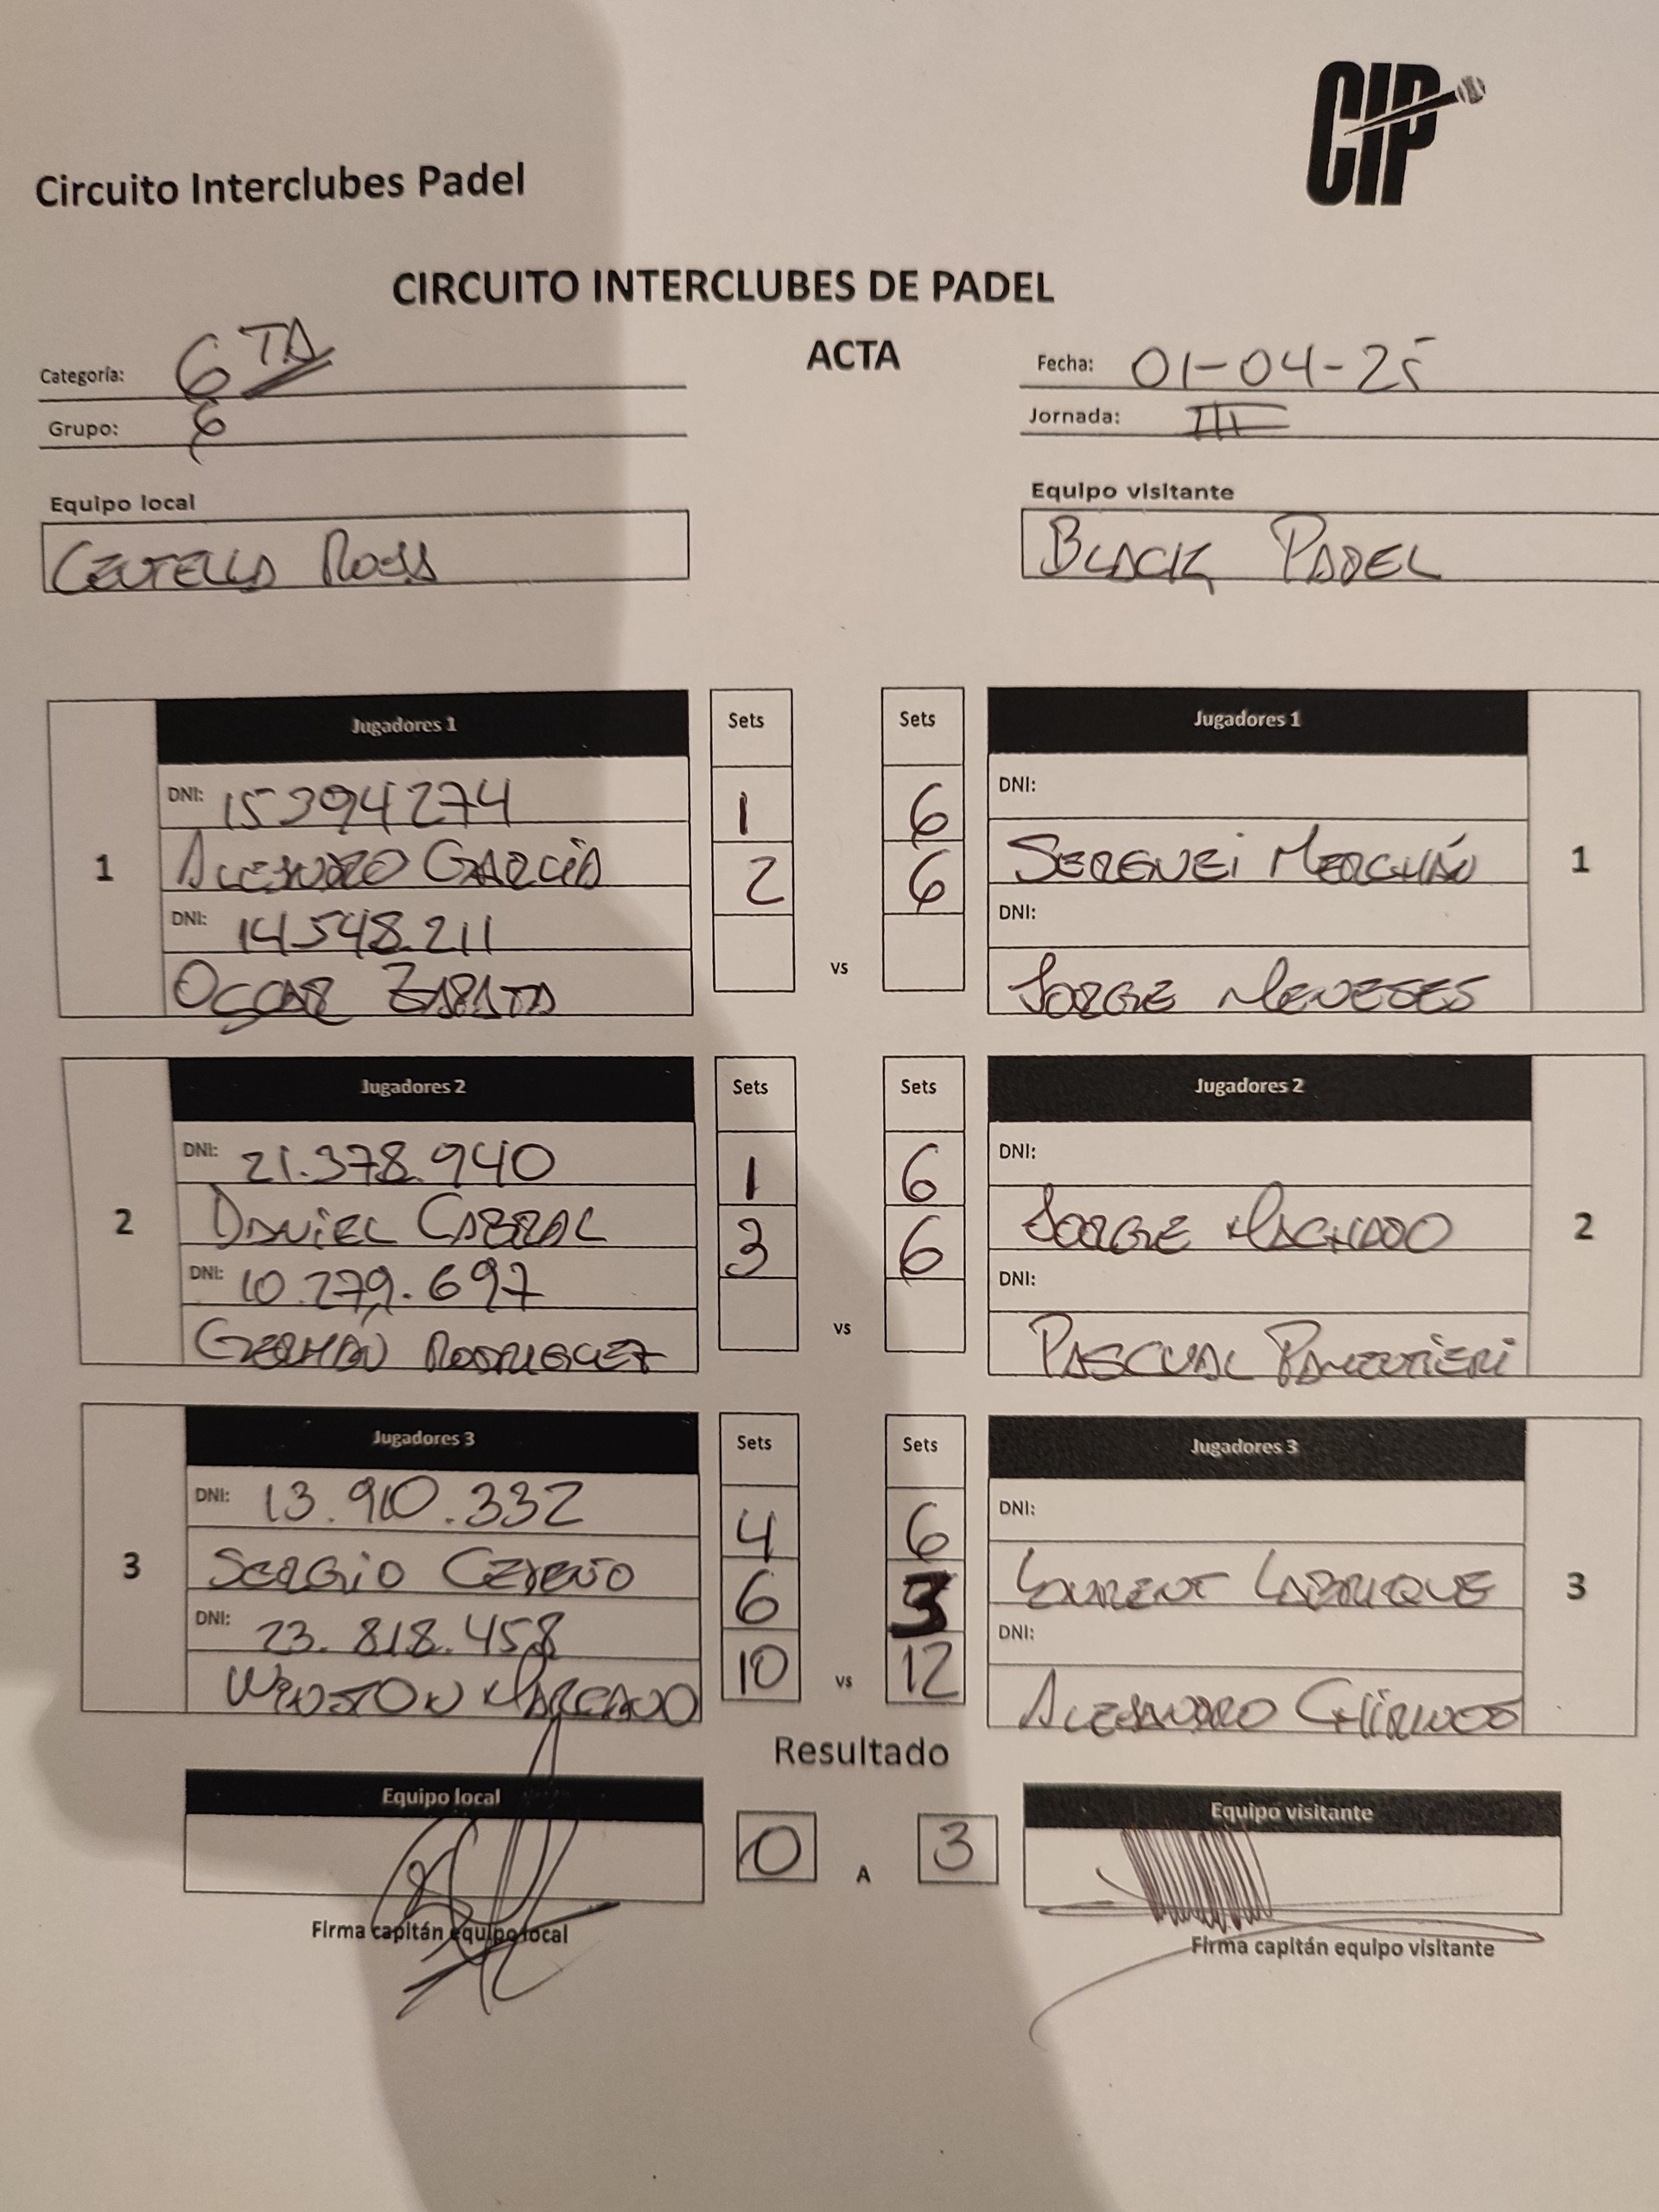 CIP
Circuito Interclubes Padel
CIRCUITO INTERCLUBES DE PADEL
ACTA
Categoría: 6TA
Fecha: 01-04-25
Grupo: 6
Jornada: III
Equipo local
Equipo visitante
CENTELLA ROSS
BLACK PADEL
Jugadores 1 Sets Sets Jugadores 1
DNI: 15394274 1 6 DNI:
ALEJANDRO GARCÍA 2 6 SERGUEI MERCHÁN
1 1
DNI: 14548.211 DNI:
vs
OSCAR ZAPATA JORGE MENESES
Jugadores 2 Sets Sets Jugadores 2
DNI: 21.378.940 1 6 DNI:
DANIEL CABRAL 3 6 JORGE MACHADO
2 2
DNI: 10.279.697 DNI:
vs
GERMÁN RODRIGUEZ PASCUAL
Jugadores 3 Sets Sets Jugadores 3
DNI: 13.910.332 4 6 DNI:
SERGIO CEDEÑO 6 3 LAURENT LABRIQUE
3 3
DNI: 23.818.458 DNI:
10 vs 12
WINSTON MARCANO ALEJANDRO CHIRINOS
Resultado
Equipo local Equipo visitante
0 A 3
Firma capitán equipo local
Firma capitán equipo visitante